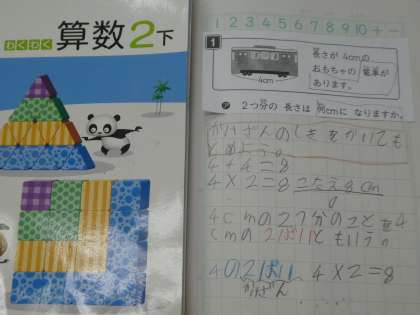 わくわく 算数 2下
1 2 3 4 5 6 7 8 9 10 + -
1
長さが 4cmの
おもちゃの 電車が
あります。
4cm
㋐ 2つ分の 長さは 何cmに なりますか。
かけざんのしきをかいても
とめよう。
4+4=8
4×2=8 こたえ8cm
4cmの2つ分のことを4
cmの2ばいともいう。
4の2ばい 4×2=8
かけざん